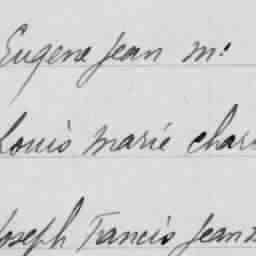 Eugene Jean M.
Louis Marie Char
Joseph Francis Jean